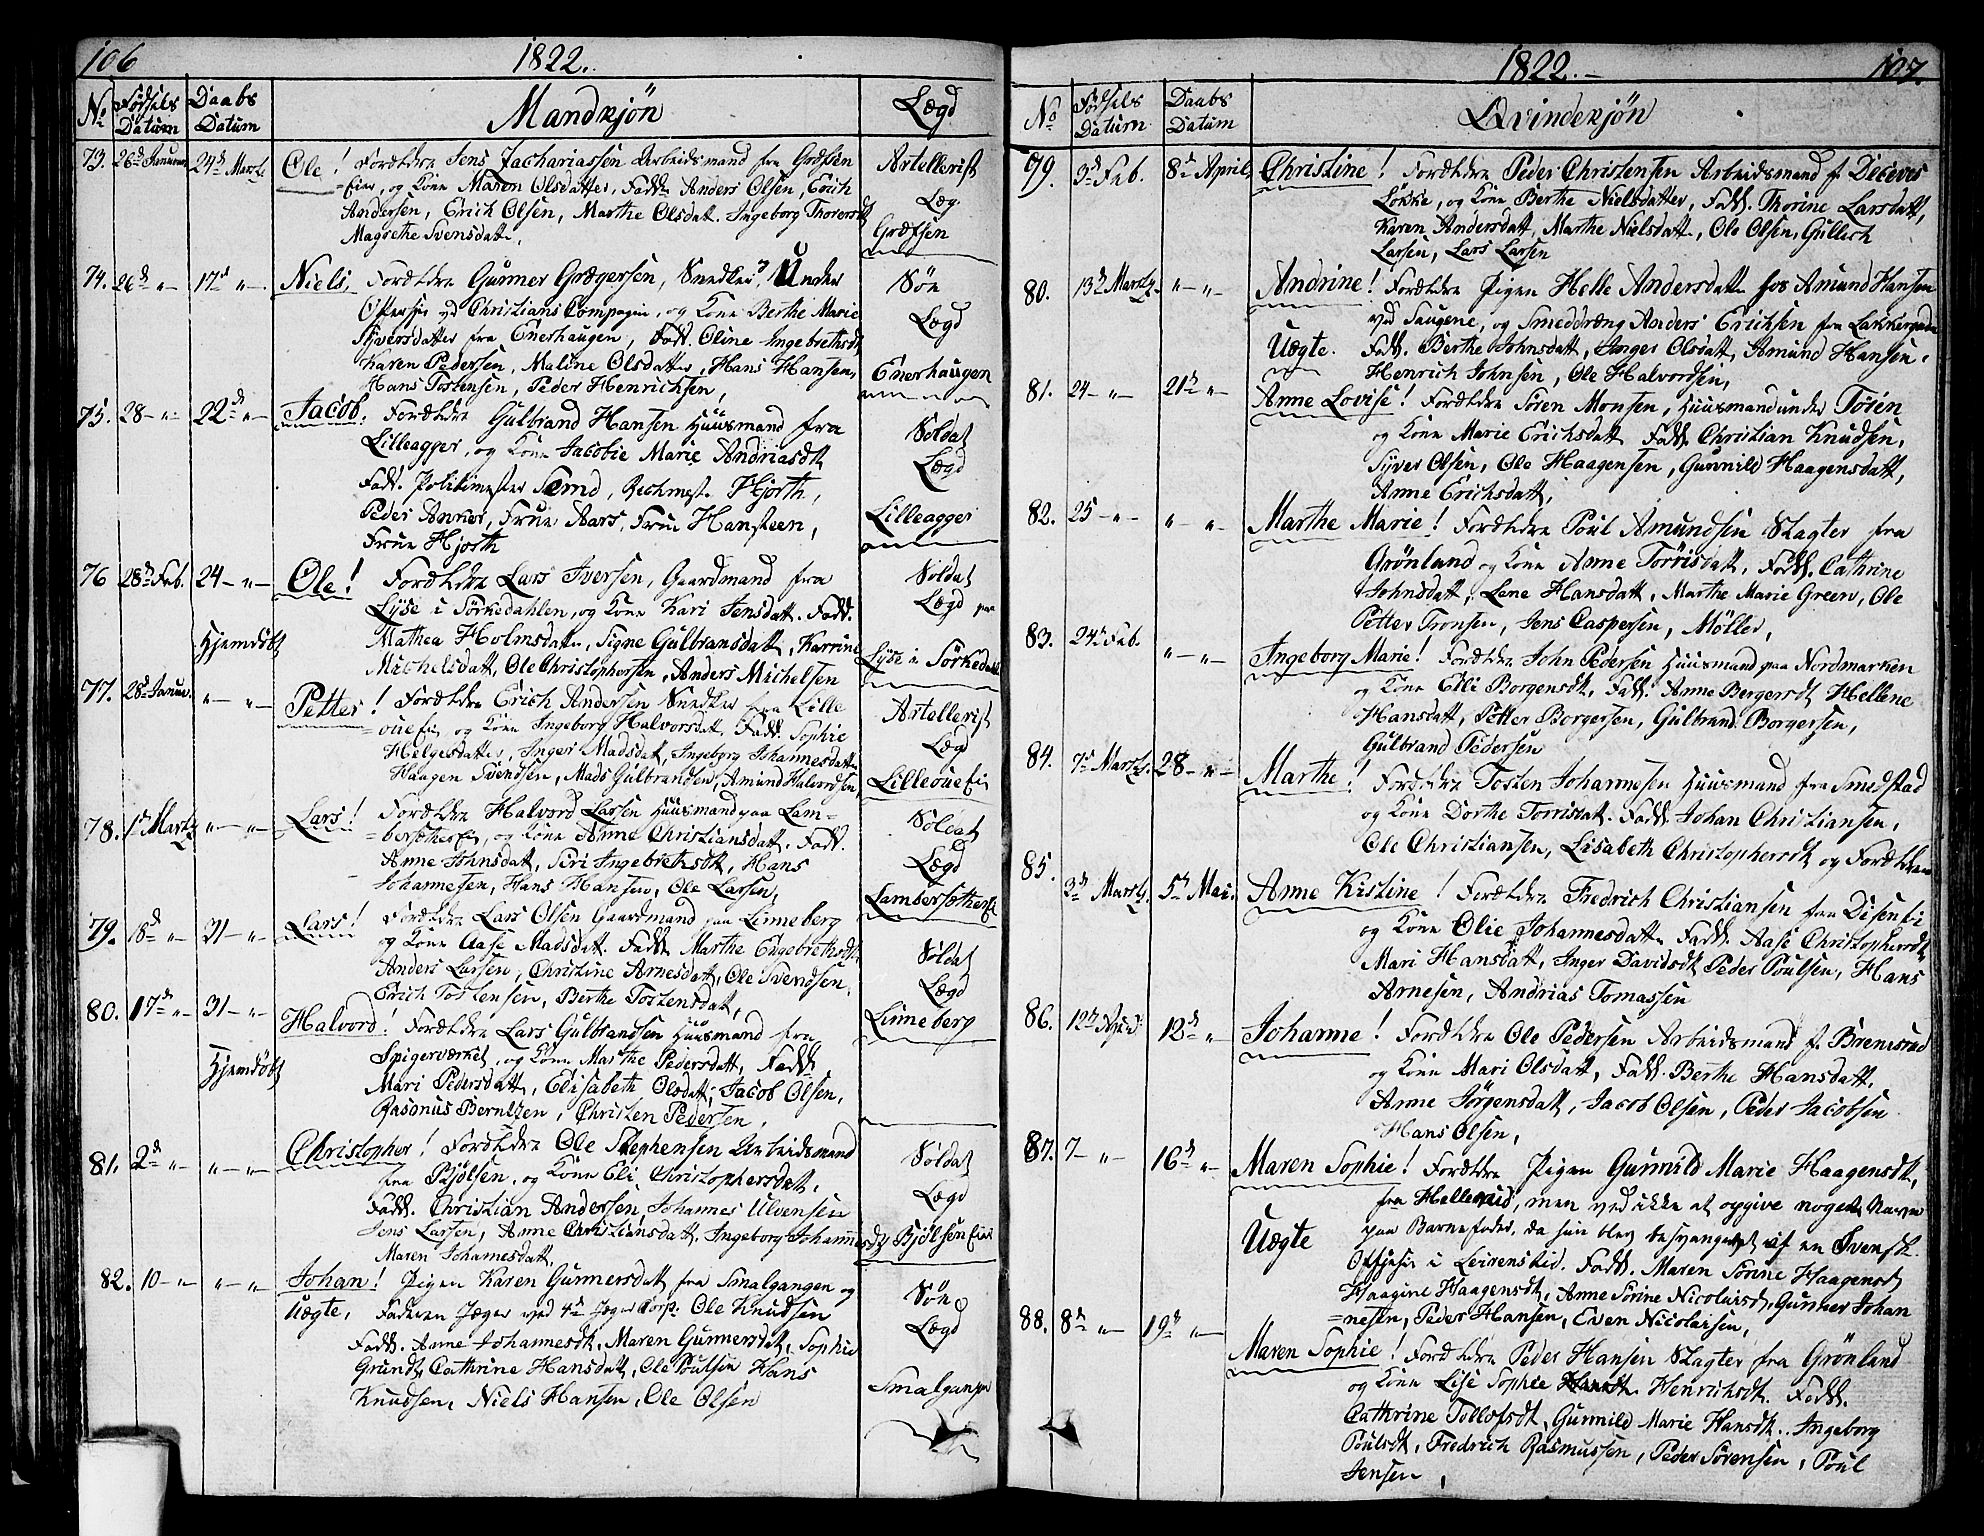 106
1822.
No
Fødsels Datum
Daabs Datum
Mandkjön
Lægd
73. 26d Januar 24d Martz Ole! Forældre Jens Zachariassen Arbeidsmand fra Græfsen
Eier, og Kone Maren Olsdatter, Fadd. Anders Olsen, Erich
Andersen, Erich Olsen, Marthe Olsdat. Ingeborg Thorersdt
Magrethe Svensdatt.
Artellerist
Læg.
Græfsen
74. 26d -"- 17d -"- Niels, Forældre Gunner Grægersen, Snedker, Under
Officeer ved Christians Compagni, og Kone Berthe Marie
Syversdatter fra Enerhaugen, Fadd. Oline Ingebrethsdt
Karen Pedersen, Maline Olsdatter, Hans Hansen,
Hans Tostensen, Peder Henrichsen,
Søe
Lægd
Enerhaugen
75. 28 -"- 22d -"- Jacob. Forældre Gulbrand Hansen Huusmand fra
Lilleagger, og Kone Jacobie Marie Andriasdt
Fadd. Politimester Hjorth,
Peder Anker, Frue Aars, Frue Hansteen,
Frue Hjorth
Soldat
Lægd
Lilleagger
76 28d Feb. 24 -"- Ole! Forældre Lars Iversen, Gaardmand fra
Lyse i Sørkedahlen, og Kone Kari Jensdatt. Fadd.
Hjemdöbt
Mathea Holmsdatr, Signe Gulbransdatt, Karrine
Michelsdatt, Ole Christophersen, Anders Michelsen
Soldat
Lægd paa
Lyse i Sørkedahl
77. 28d Januar. "- "- Petter! Forældre Erich Andersen Snedker fra Lille
oueEie, og Kone Ingeborg Halvorsdatt, Fadd. Sophie
Helgesdatter, Inger Madsdat, Ingeborg Johannesdatter
Haagen Svendsen, Mads Gulbrandsen, Amund Halvordsen,
Artellerist
Lægd
LilleoueEie
78. 1d Martz "- "- Lars! Forældre Halvord Larsen Huusmand paa Lam-
=bersæterEie, og Kone Anne Christiansdatt. Fadd.
Anne Johnsdatt, Siri Ingebrethsdt, Hans
Johannesen, Hans Hansen, Ole Larsen,
Soldat
Lægd
LambersætherEi
79. 18d -"- 31 -"- Lars! Forældre Lars Olsen Gaardmand paa Linneberg
og Kone Aase Madsdatt. Fadd. Marthe Engebrethsdt
Anders Larsen, Christine Arnesdatt, Ole Svendsen,
Erich Tostensen, Berthe Tostensdatt,
Soldat
Lægd
Linneberg
80. 17d -"- 31 -"- Halvord! Forældre Lars Gulbrandsen Huusmand fra
Hjemdöbt
Spigerværket, og Kone Marthe Pedersdatt, Fadd.
Mari Pedersdatt, Elisabeth Olsdatt, Jacob Olsen,
Rasmus Berntzen, Christen Pedersen,
81. 2d -"- "- "- Christopher! Forældre Ole Stephensen Arbeidsmand
fra Bjølsen, og Kone Eli Christophersdatt.
Fadd. Christian Andersen, Johannes Ulvensen
Jens Larsen, Anne Christiansdatt, Ingeborg Johannesdt
Maren Johannesdatt.
Soldat
Lægd
BjølsenEier
82. 10 -"- "- "- Johan! Pigen Karen Gunnersdatt fra Smalgangen og
Uægte, Faderen Jæger ved 4d Jæger Corp. Ole Knudsen
Fadd. Anne Johannesdt, Maren Gunnersdat, Sophie
Grundt, Cathrine Hansdatt, Ole Poulsen Hans
Knudsen, Niels Hansen, Ole Olsen
Søe
Lægd
Smalgangen
1822.
107.
No
Fødsels Datum
Daabs Datum
Qvindekjön
79. 3d Feb. 8d April, Christine! Forældre Peder Christensen Arbeidsmand f.
Løkke, og Kone Berthe Nielsdatter, Fadd. Thorine Larsdatt,
Karen Andersdatt, Marthe Nielsdatt, Ole Olsen, Gullech
Larsen, Lars Larsen
80. 13d Martz. "- "- Andrine! Forældre Pigen Helle Andersdatt hos Amund Hansen
ved Saugene, og Smeddræng Anders Erichsen fra Lakkergaden
Uægte. Fadd. Berthe Johnsdatt, Inger Olsdatt, Amund Hansen,
Henrich Johnsen, Ole Halvordsen,
81. 24 -"- 21d "- Anne Lovise! Forældre Sören Monsen, Huusmand under Töien
og Kone Marie Erichsdatt Fadd. Christian Knudsen,
Syver Olsen, Ole Haagensen, Gunnild Haagensdatt,
Anne Erichsdatt,
82. 25 -"- "- "- Marthe Marie! Forældre Poul Amundsen Slagter fra
Grönland og Kone Anne Torrisdatt, Fadd. Cathrine
Johnsdatt, Lene Hansdatt, Marthe Marie Green, Ole
Petter Tronsen, Jens Caspersen, Møller,
83. 24d Feb. "- "- Ingeborg Marie! Forældre John Pedersen Huusmand paa Nordmarken
og Kone Elli Borgensdt, Fadd. Anne Bergersdt Hellene
Hansdatt, Petter Borgersen, Gulbrand Borgersen,
Gulbrand Pedersen
84. 7d Martz. 28 -"- Marthe! Forældre Tosten Johannesen Huusmand fra Smedstad
og Kone Dorthe Torrisdat. Fadd. Johan Christiansen,
Ole Christiansen, Lisabeth Christophersdt og Forældrene
85. 3d Martz. 5d Mai. Anne Kistine! Forældre Fredrich Christiansen fra Disen Ei
og Kone Olie Johannesdatt. Fadd. Aase Christophersdt
Mari Hansdatt, Inger Davidsdt Peder Poulsen, Hans
Arnesen, Andrias Tomassen
86. 12d April 12d "- Johanne! Forældre Ole Pedersen Arbeidsmand f. Brenisrud
og Kone Mari Olsdatt, Fadd. Berthe Hansdatt.
Anne Jörgensdatt, Jacob Olsen, Peder Jacobsen
Hans Olsen,
87. 7 -"- 16d "- Maren Sophie! Forældre Pigen Gunnild Marie Haagensdt,
fra Hellerud, men ved ikke at opgive noget Navn
Uægte
paa Barnefader, da hun blev besvangret af en Svensk
Officeer i Leirenskid. Fadd. Maren Sörine Haagensdt
Haagine Haagensdt, Anne Sörine Nicolaisdt, Gunner Johan
=nesen, Peder Hansen, Even Nicolaisen,
88. 8d "- 19d "- Maren Sophie! Forældre Peder Hansen Slagter fra Grönland
og Kone Lise Sophie Henrichsdt. Fadd.
Cathrine Tollofsdt, Gunnild Marie Hansdt., Ingeborg
Poulsdt, Fredrich Rasmussen, Peder Sörensen, Poul
Jensen,